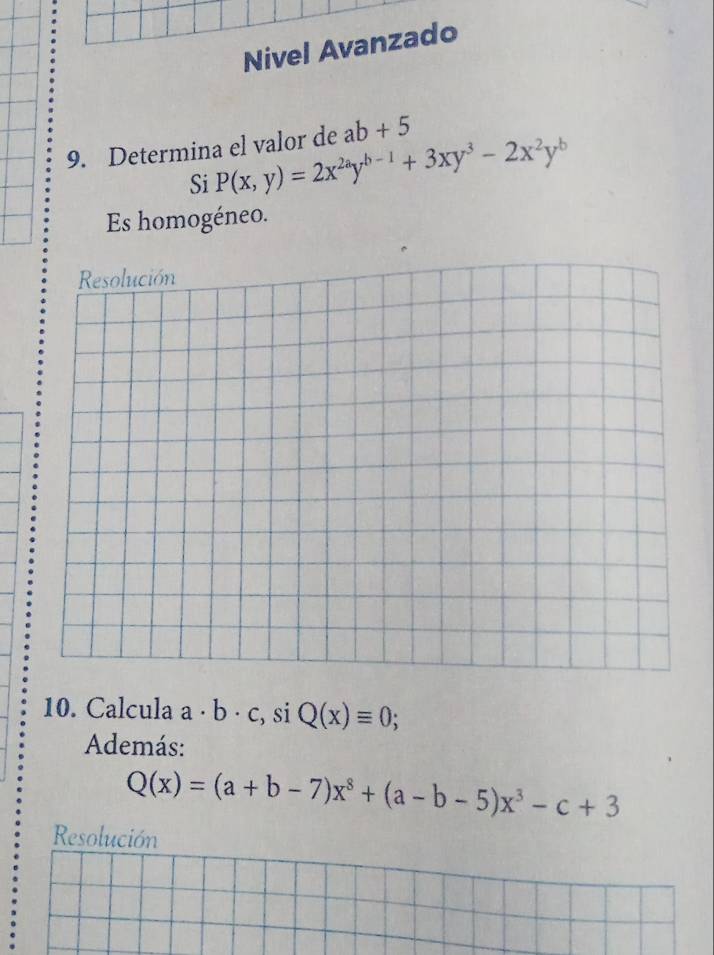 Nivel Avanzado
9. Determina el valor de ab + 5
Si P(x, y) = 2x²ᵃyᵇ⁻¹ + 3xy³ − 2x²yᵇ
Es homogéneo.
Resolución
10. Calcula a · b · c, si Q(x) ≡ 0;
Además:
Q(x) = (a + b − 7)x⁸ + (a − b − 5)x³ − c + 3
Resolución